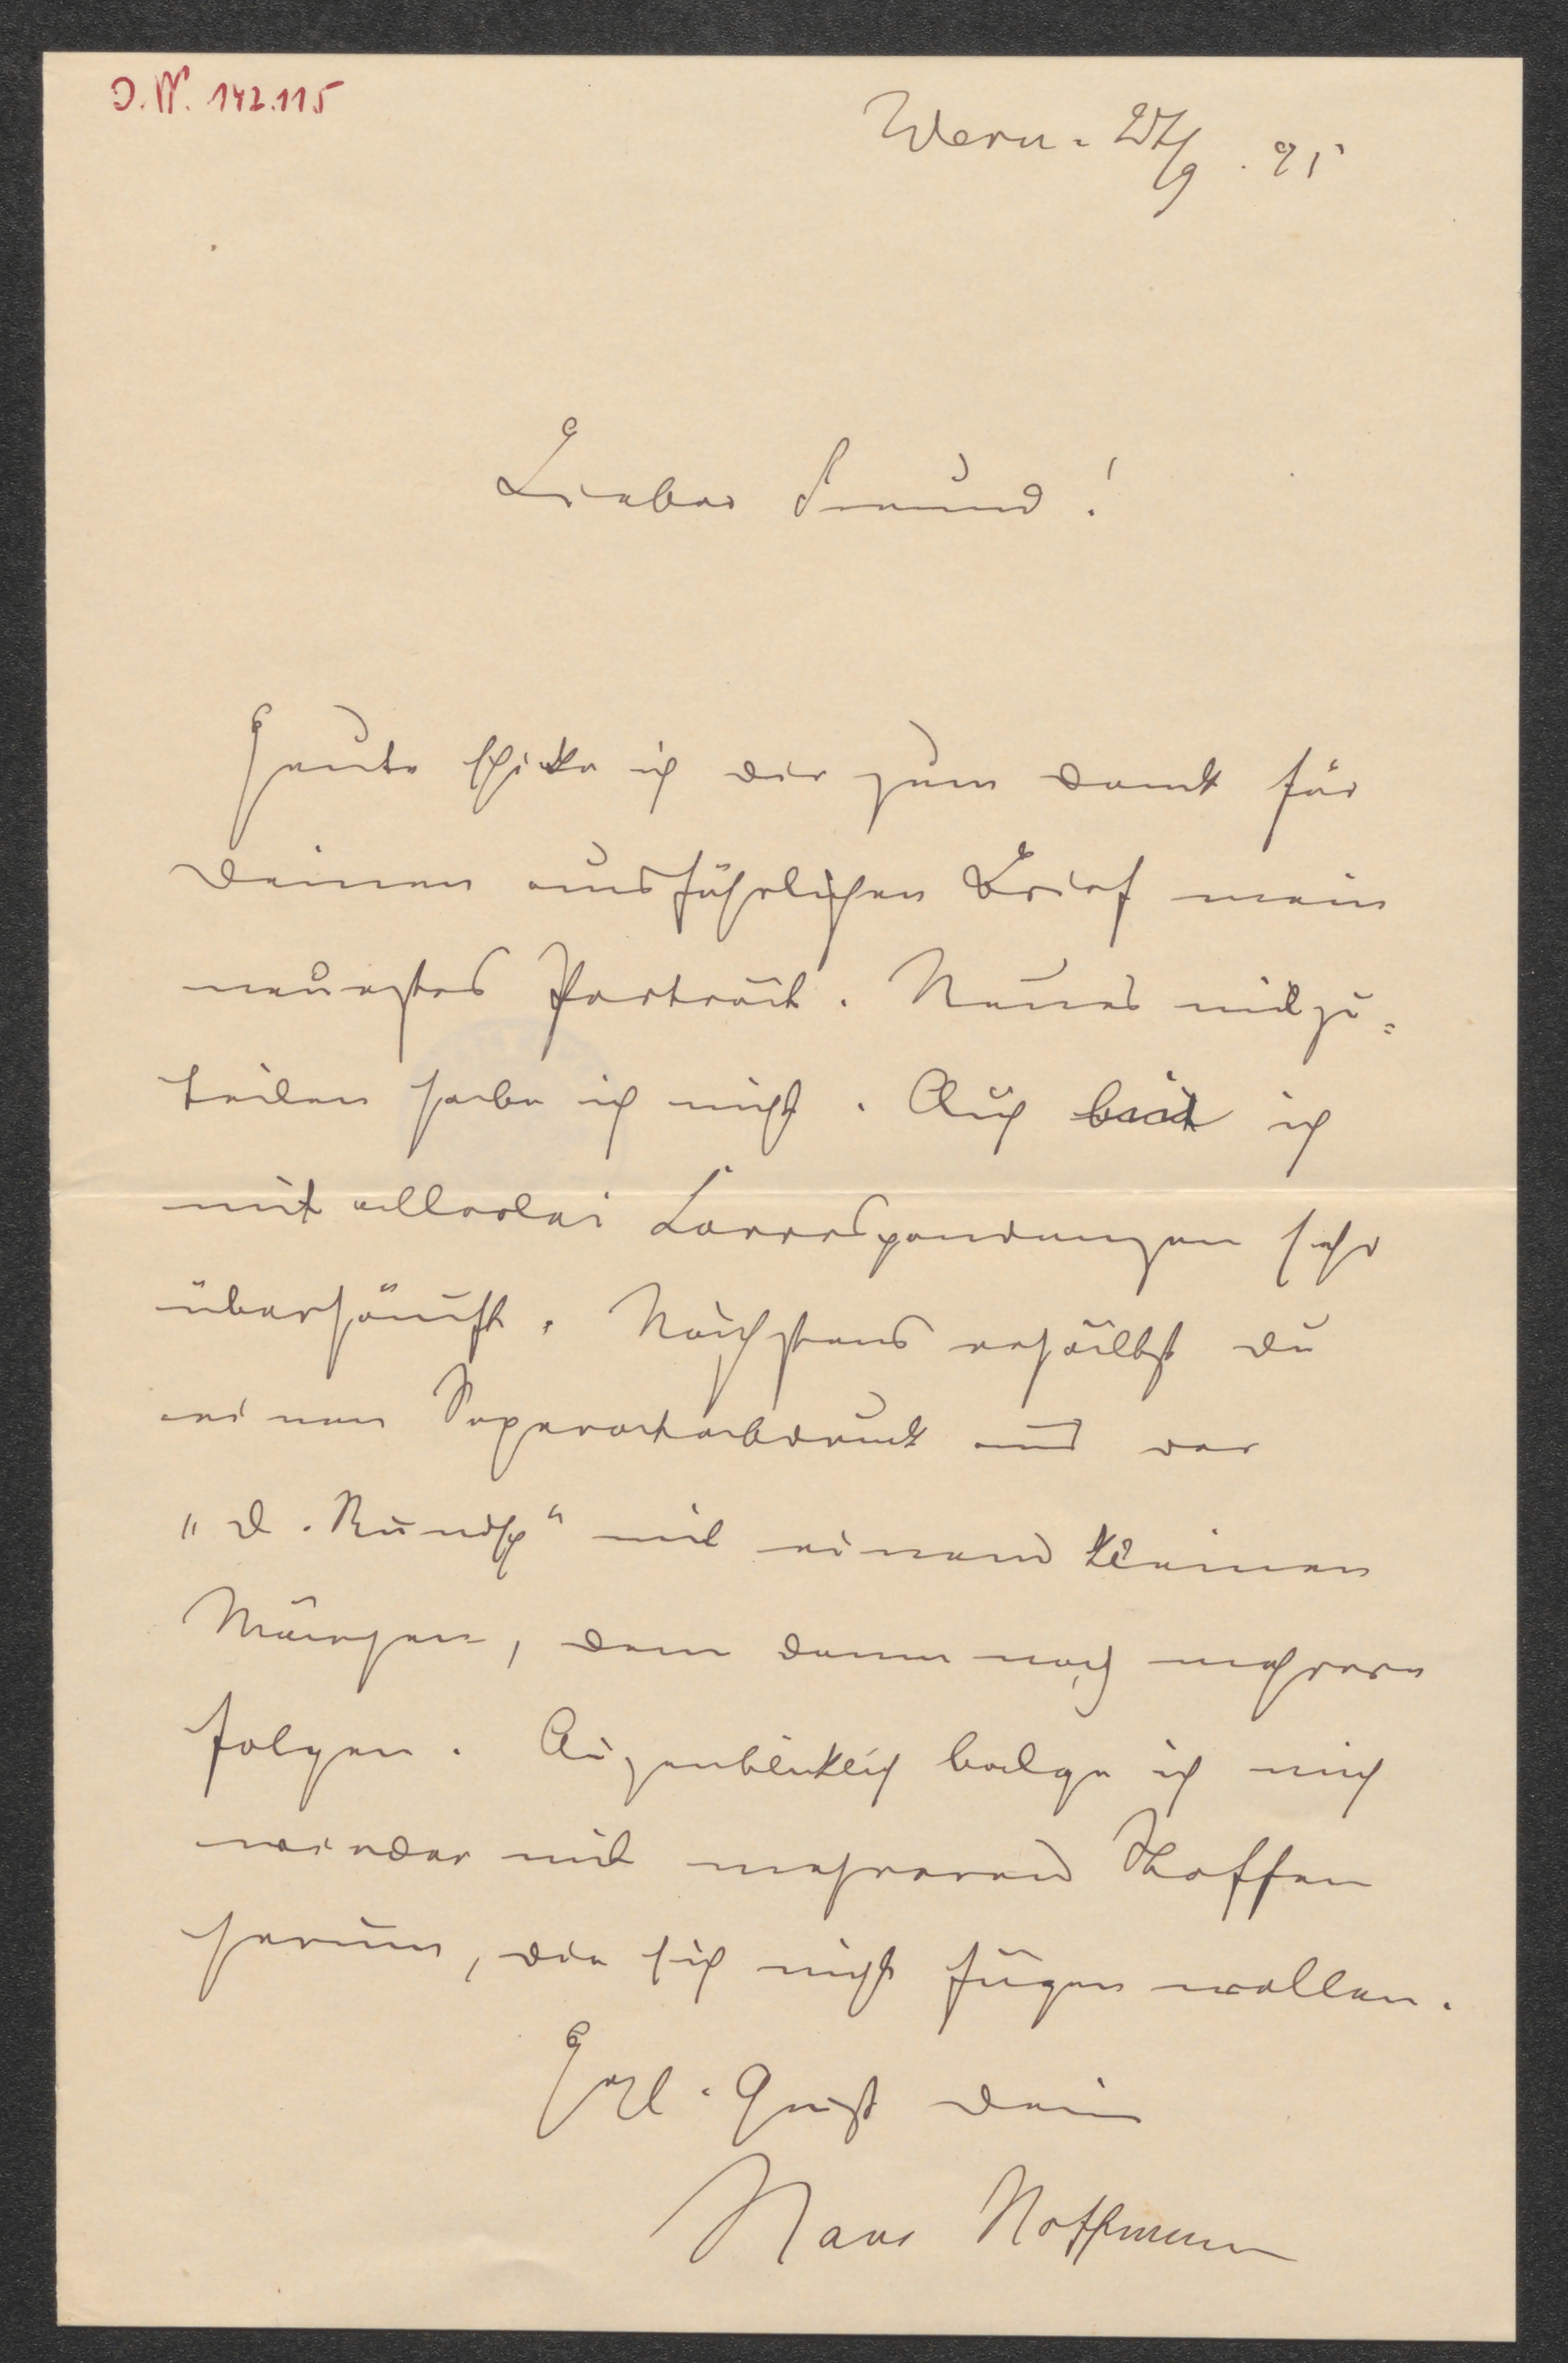 J.N. 142.115
Wern. 27/9. 95
Lieber Freund!
Heute schicke ich dir zum Dank für
Deinen ausführlichen Brief mein
neuestes Porträt. Neues mitzu=
teilen habe ich nicht. Auch bin ich
mit allerlei Correspondenzen sehr
überhäuft. Nächstens erhältst du
einen Separatabdruck aus der
„D. Rundsch“ mit einem kleinen
Märchen, dem dann noch mehrere
folgen. Augenblicklich balge ich mich
wieder mit mehreren Stoffen
herum, die sich nicht fügen wollen.
Herzl. Gruß Dein
Hans Hoffmann